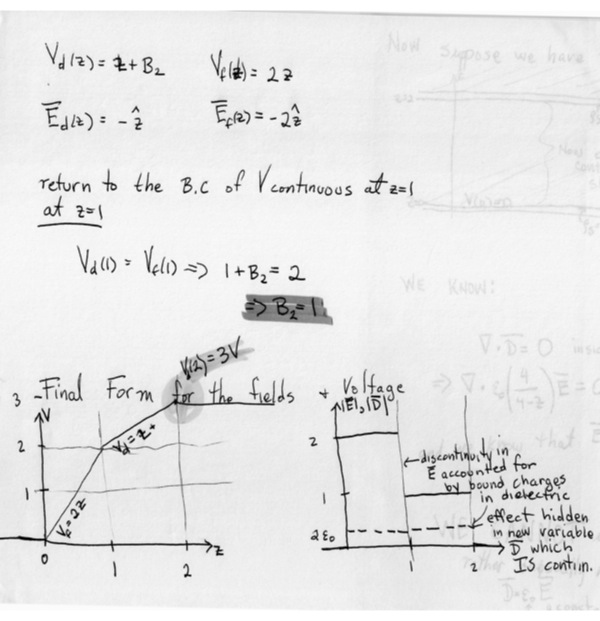 V_d(z) = z + B_2    V_f(z) = 2z
E_d(z) = -ẑ    E_f(z) = -2ẑ
return to the B.C of V continuous at z=1
at z=1
V_d(1) = V_f(1) => 1+B_2 = 2
=> B_2 = 1
V(2) = 3V
3 - Final Form for the fields + Voltage
V
2
1
V_d = z+
V_f = 2z
0
1
2
z
|E|, |D|
2
1
2ε_0
discontinuity in
E accounted for
by bound charges
in dielectric
effect hidden
in new variable
D which
IS contin.
1
2
z
Now suppose we have
WE KNOW:
∇·D = 0